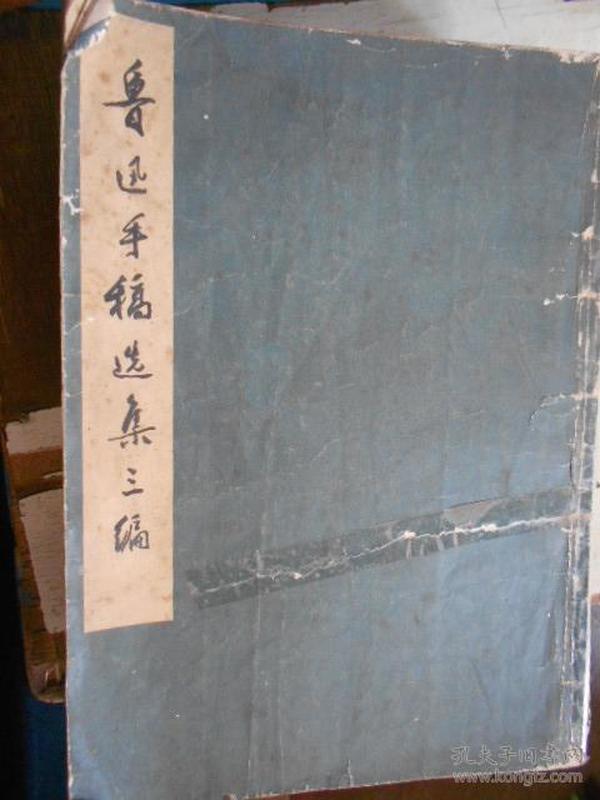 鲁迅手稿选集三编
孔夫子旧书网
www.kongfz.com